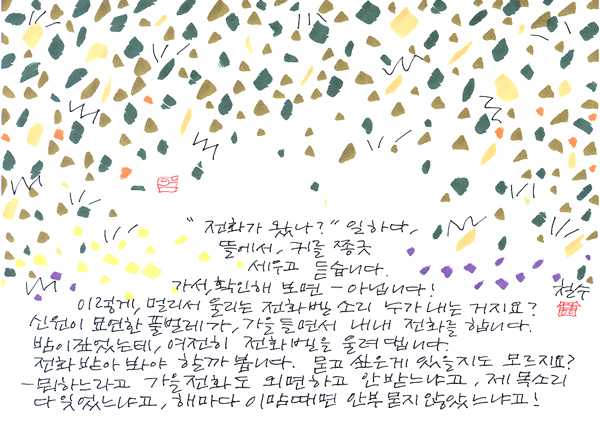 "전화가 왔나?" 일하다,
뜰에서, 귀를 쫑긋
세우고 듣습니다.
가서, 확인해 보면 - 아닙니다!
이렇게, 멀리서 울리는 전화벨 소리 누가 내는 거지요?
신원이 묘연한 풀벌레가, 가을 들면서 내내 전화를 합니다.
밤이 깊었는데, 여전히 전화벨을 울려댑니다.
전화 받아 봐야 할까 봅니다. 묻고 싶은게 있을지도 모르지요?
- 뭐하느라고 가을전화도 외면하고 안받느냐고, 제 목소리
다 잊었느냐고, 해마다 이맘때면 안부 묻지 않았느냐고!
철수